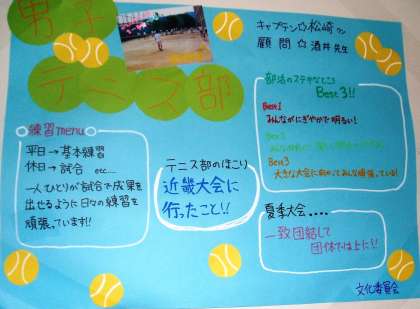 男子
テニス部
キャプテン☆松崎さん
顧問☆酒井先生
練習menu
平日→基本練習
休日→試合 etc....
一人ひとりが試合で成果を
出せるように日々の練習を
頑張っています!!
テニス部のほこり
近畿大会に
行ったこと!!
部活のステキなところ
Best3!!
Best1
みんながにぎやかで明るい!
Best2
Best3
大きな大会に向かってみんな頑張っている!
夏季大会....
一致団結して
団体では上に!!
文化委員会